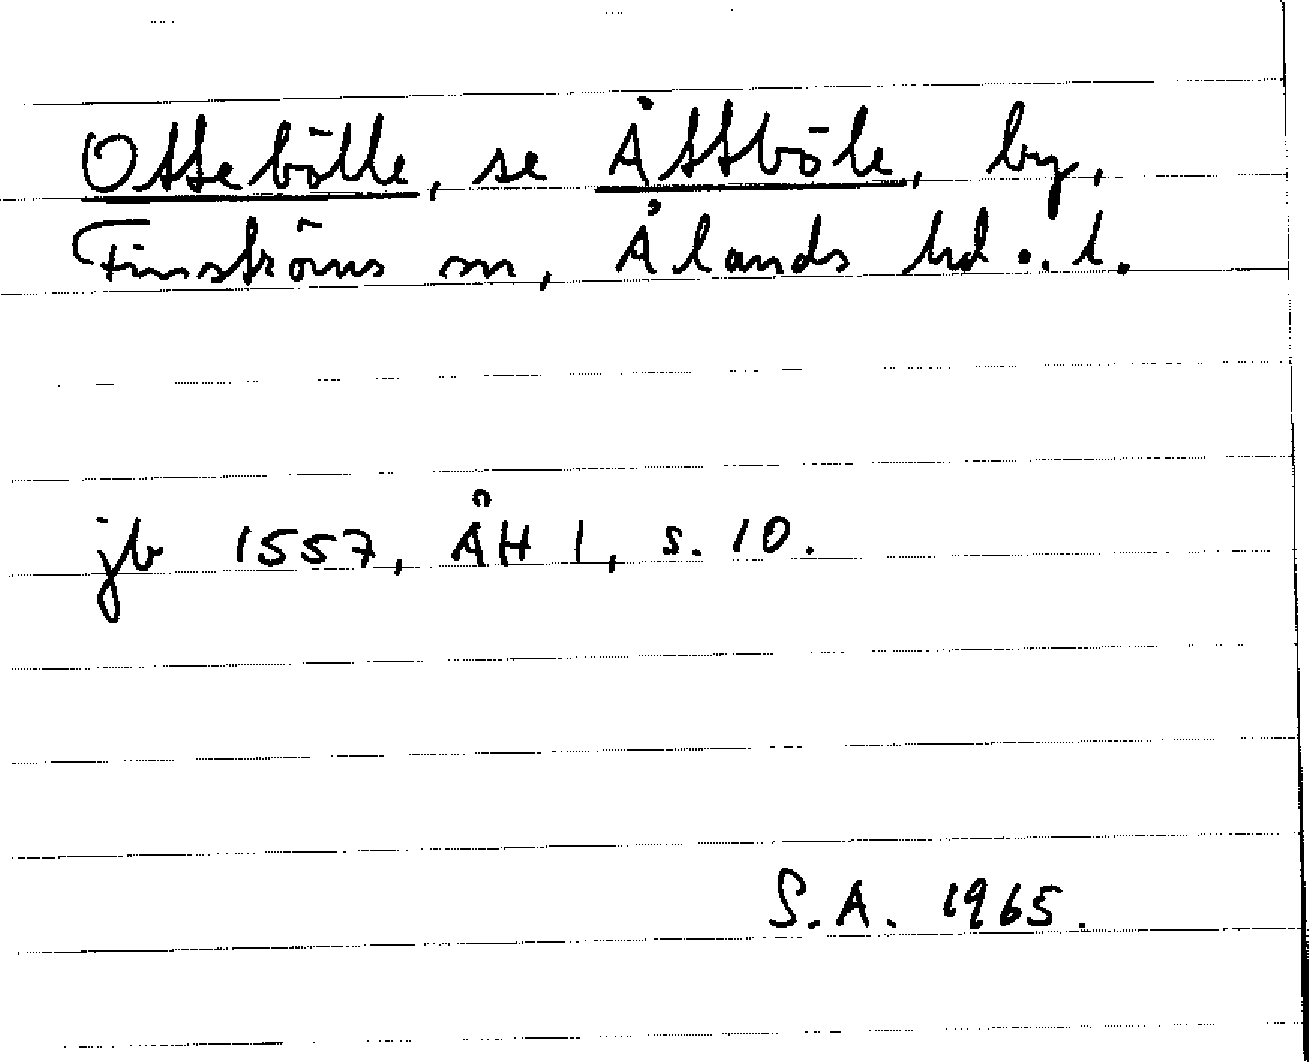 Ottebölle, se Åttböle, by,
Finströms sn, Ålands hd o. l.
jb 1557, ÅH I, s. 10.
S.A. 1965.